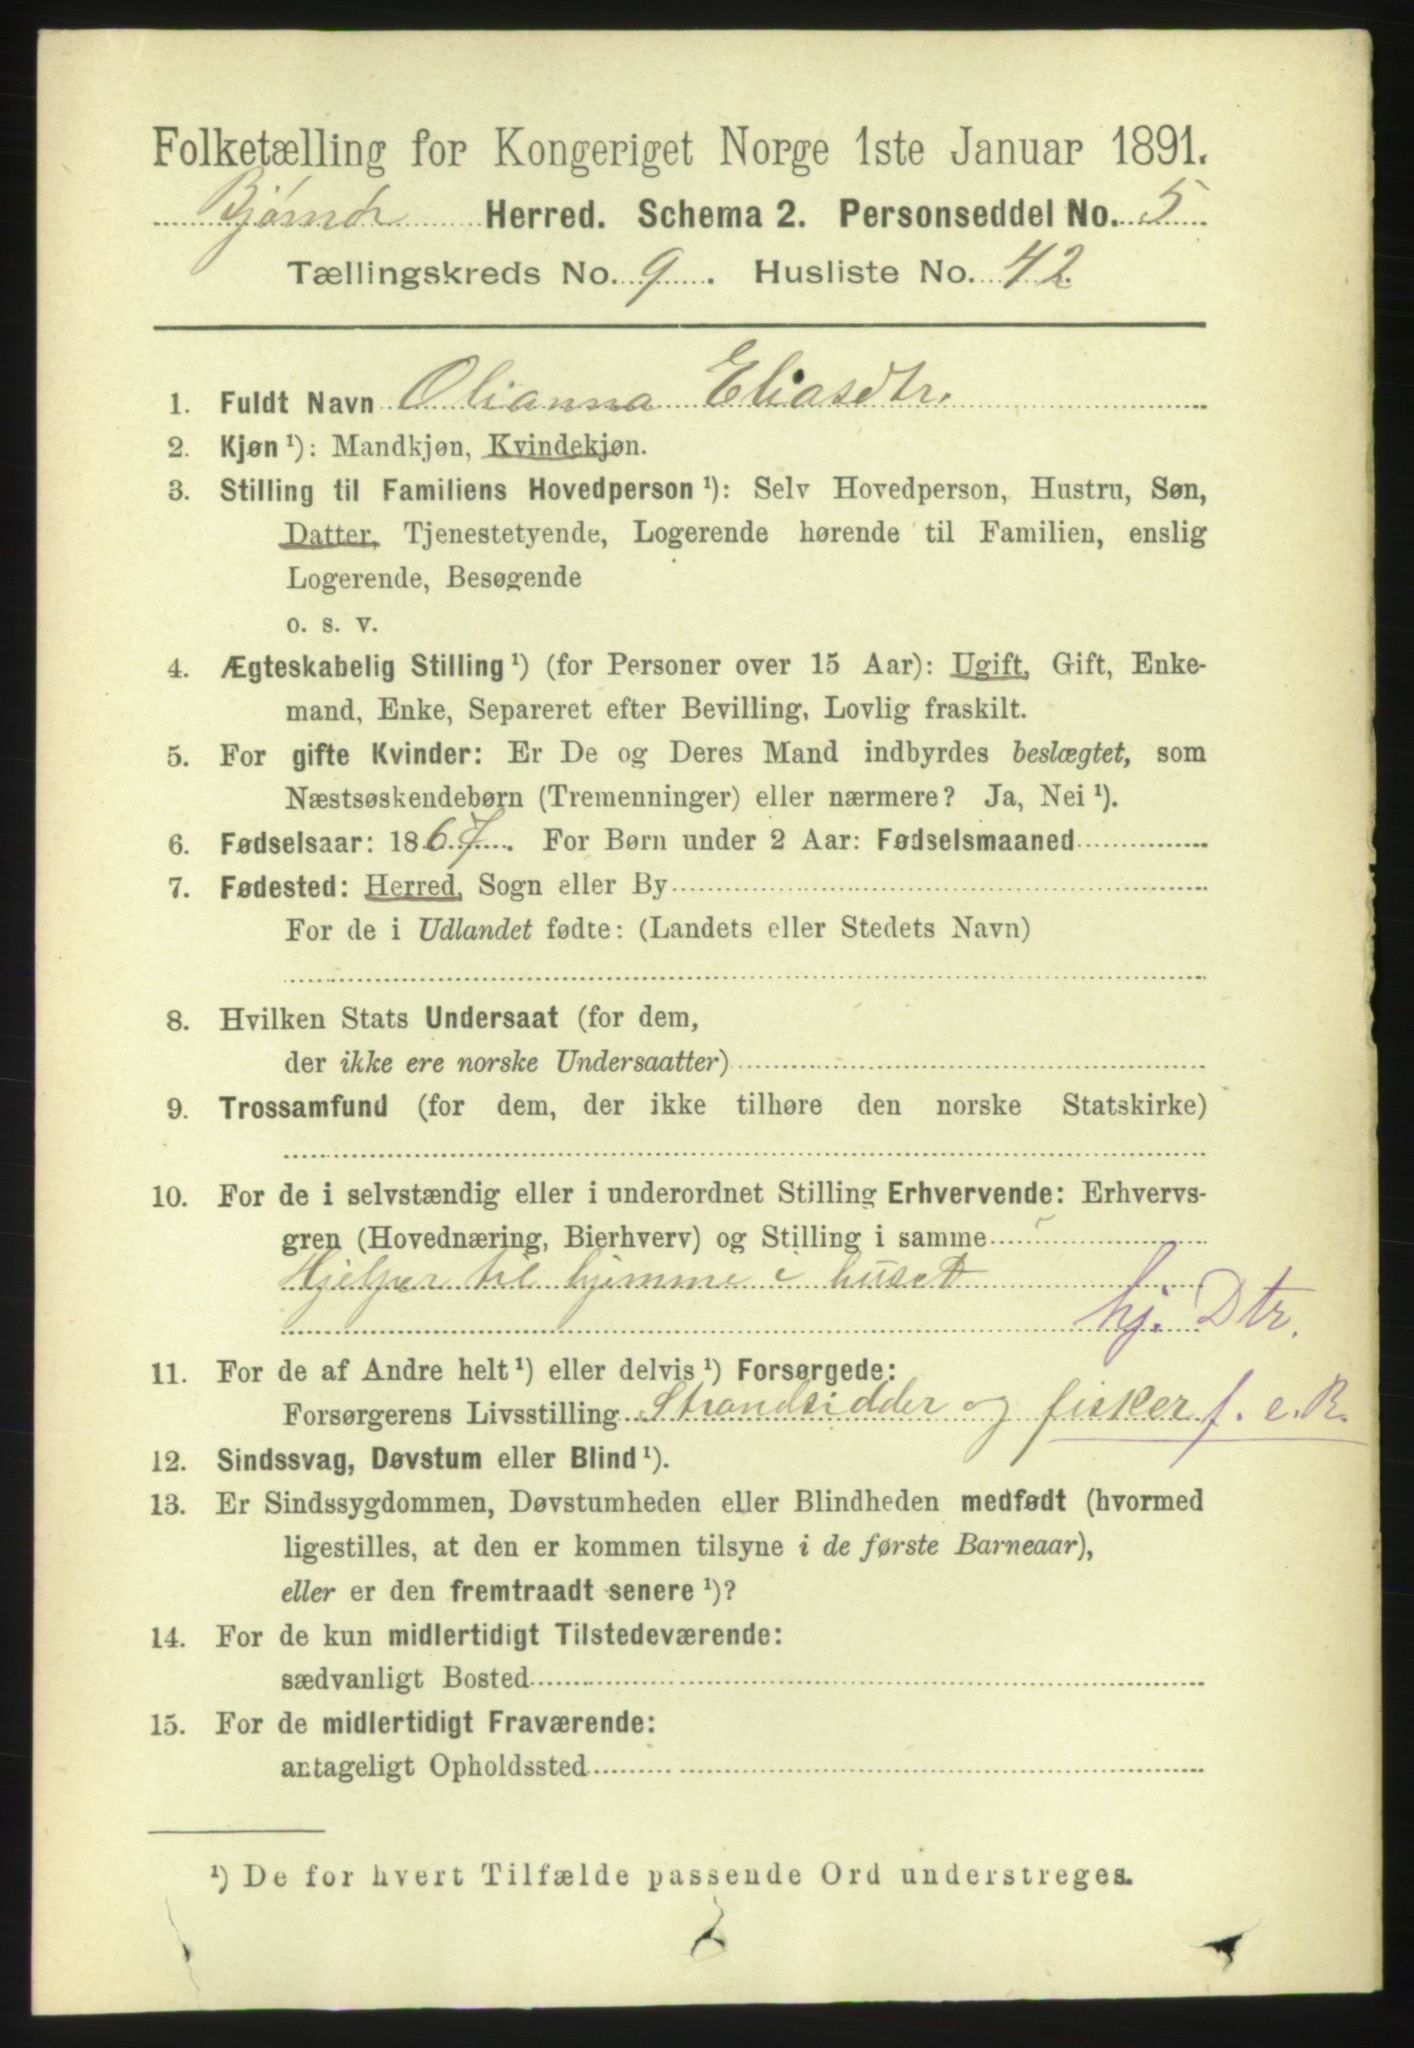 Folketælling for Kongeriget Norge 1ste Januar 1891.
Bjørnør Herred. Schema 2. Personseddel No. 5
Tællingskreds No. 9. Husliste No. 42
1. Fuldt Navn Olianna Eliasdtr.
2. Kjøn ¹): Mandkjøn, Kvindekjøn.
3. Stilling til Familiens Hovedperson ¹): Selv Hovedperson, Hustru, Søn,
Datter, Tjenestetyende, Logerende hørende til Familien, enslig
Logerende, Besøgende
o. s. v.
4. Ægteskabelig Stilling ¹) (for Personer over 15 Aar): Ugift, Gift, Enke-
mand, Enke, Separeret efter Bevilling, Lovlig fraskilt.
5. For gifte Kvinder: Er De og Deres Mand indbyrdes beslægtet, som
Næstsøskendebørn (Tremenninger) eller nærmere? Ja, Nei ¹).
6. Fødselsaar: 1867. For Børn under 2 Aar: Fødselsmaaned
7. Fødested: Herred, Sogn eller By
For de i Udlandet fødte: (Landets eller Stedets Navn)
8. Hvilken Stats Undersaat (for dem,
der ikke ere norske Undersaatter)
9. Trossamfund (for dem, der ikke tilhøre den norske Statskirke)
10. For de i selvstændig eller i underordnet Stilling Erhvervende: Erhvervs-
gren (Hovednæring, Bierhverv) og Stilling i samme
Hjelper til hjemme i huset
hj. Dtr.
11. For de af Andre helt ¹) eller delvis ¹) Forsørgede:
Forsørgerens Livsstilling Strandsidder og fisker f. e. R.
12. Sindssvag, Døvstum eller Blind ¹).
13. Er Sindssygdommen, Døvstumheden eller Blindheden medfødt (hvormed
ligestilles, at den er kommen tilsyne i de første Barneaar),
eller er den fremtraadt senere ¹)?
14. For de kun midlertidigt Tilstedeværende:
sædvanligt Bosted
15. For de midlertidigt Fraværende:
antageligt Opholdssted
¹) De for hvert Tilfælde passende Ord understreges.